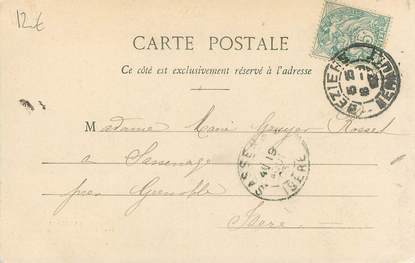 12€
CARTE POSTALE
Ce côté est exclusivement réservé à l'adresse
BEZIERS
M adame Marie Rosset
a Sassenage
près Grenoble
Isère
SASSE
ISERE